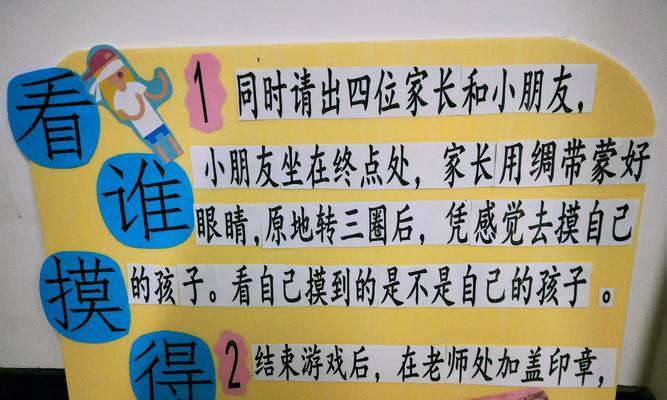 看谁摸得
1 同时请出四位家长和小朋友，
小朋友坐在终点处，家长用绸带蒙好
眼睛，原地转三圈后，凭感觉去摸自己
的孩子。看自己摸到的是不是自己的孩子。
2 结束游戏后，在老师处加盖印章，